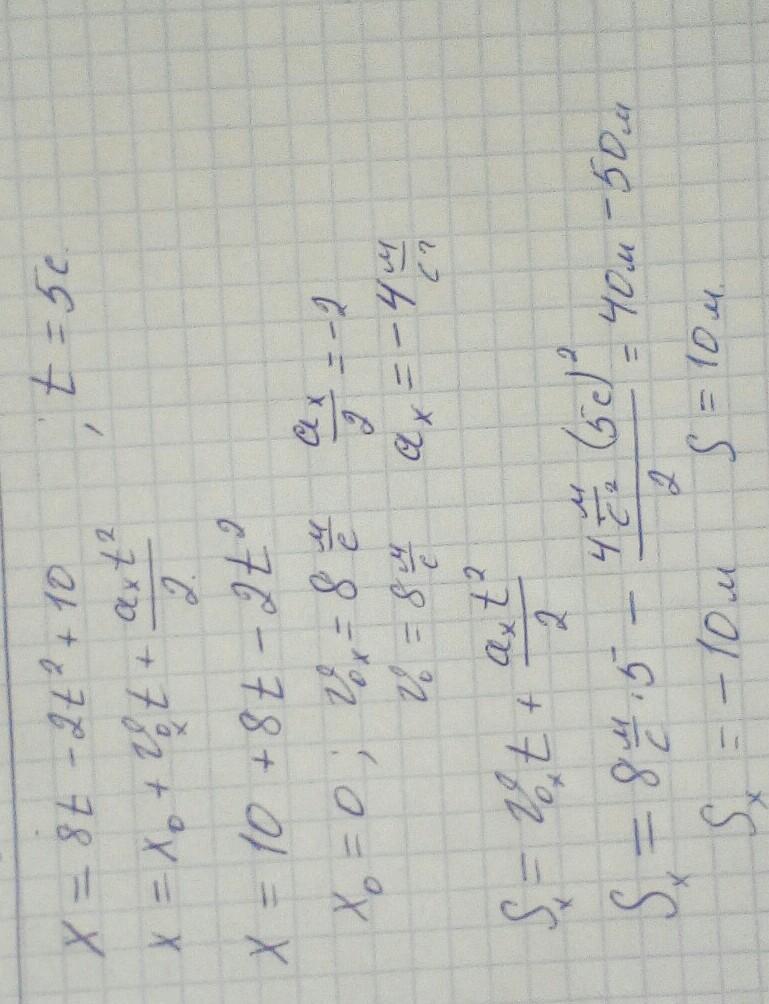 x = 8t - 2t² + 10 ; t = 5с.
x = x₀ + v₀ₓt + aₓt²/2
x = 10 + 8t - 2t²
x₀ = 0; v₀ₓ = 8 м/с aₓ/2 = -2
v₀ = 8 м/с aₓ = -4 м/с²
Sₓ = v₀ₓt + aₓt²/2
Sₓ = 8 м/с · 5 - 4 м/с² (5с)²/2 = 40м - 50м
Sₓ = -10м S = 10м.